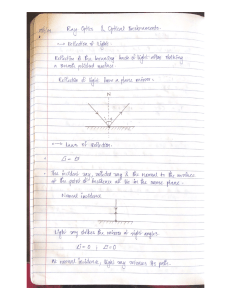 Ray Optics & Optical Instruments
→ Reflection of Light
Reflection is the bouncing back of light after striking
a smooth polished surface.
Reflection of light from a plane mirror:
N
→ Laws of Reflection:
∠i = ∠r
The incident ray, reflected ray & the normal to the surface
at the point of incidence all lie in the same plane.
Normal incidence
Light ray strikes the mirror at right angles
∠i = 0 ; ∠r = 0
At normal incidence, light ray retraces its path.